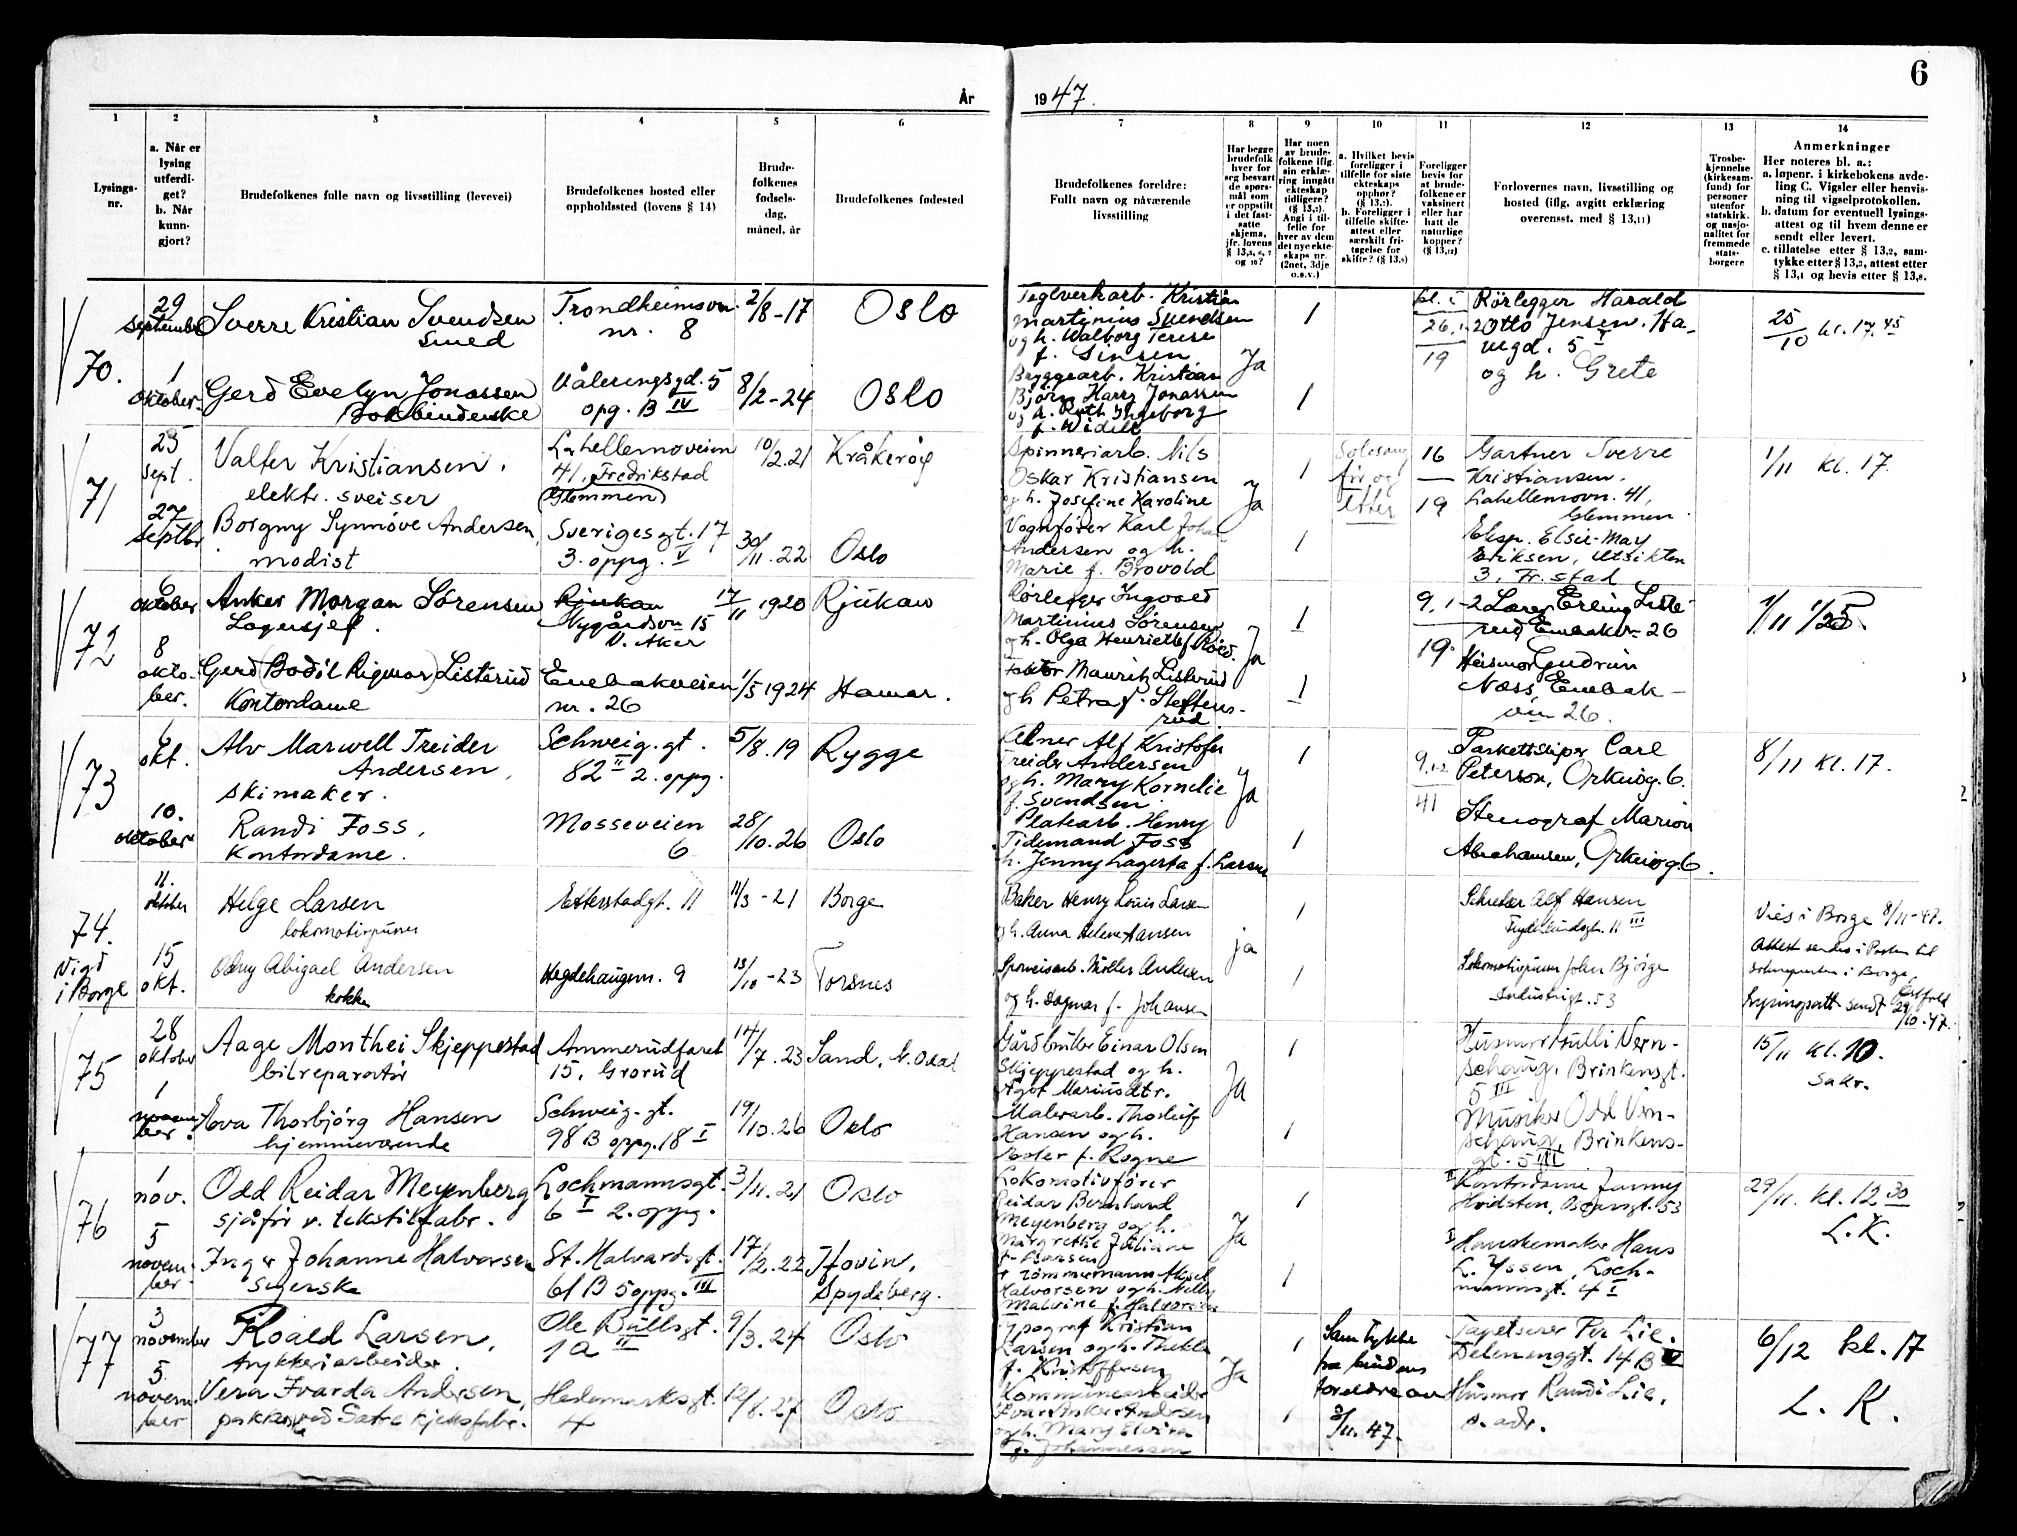 6
År
19 47.
1
2
3
4
5
6
7
8
9
10
11
12
13
14
Lysings-
nr.
a. Når er
lysing
utferdi-
get?
b. Når
kunn-
gjort?
Brudefolkenes fulle navn og livsstilling (levevei)
Brudefolkenes bosted eller
oppholdssted (lovens § 14)
Brude-
folkenes
fødsels-
dag,
måned, år
Brudefolkenes fødested
Brudefolkenes foreldre:
Fullt navn og nåværende
livsstilling
Har begge
brudefolk
hver for
seg besvart
de spørs-
mål som
er oppstilt
i det fast-
satte
skjema,
jfr. lovens
Har noen
av brude-
folkene iflg.
sin erklæ-
ring inngått
ekteskap
tidligere?
Angi i til-
felle for
hver av dem
det nye ekte-
skaps nr.
(2net, 3dje
o.s.v.)
a. Hvilket bevis
foreligger i
tilfelle for siste
ekteskaps
opphør?
b. Foreligger i
tilfelle skifte-
attest eller
særskilt fri-
tagelse for
Foreligger
bevis for
at brude-
folkene er
vaksinert
eller har
hatt de
naturlige
kopper?
Forlovernes navn, livsstilling og
bosted (iflg. avgitt erklæring
overensst. med § 13,11)
Trosbe-
kjennelse
(kirkesam-
fund) for
personer
utenfor
statskirk.
og nasjo-
nalitet for
fremmede
stats-
borgere
Anmerkninger
Her noteres bl. a.:
a. løpenr. i kirkebokens avde-
ling C. Vigsler eller henvis-
ning til vigselprotokollen.
b. datum for eventuell lysings-
attest og til hvem denne er
sendt eller levert.
c. tillatelse etter § 13,2, sam-
tykke etter § 13,3, attest etter
§ 13,4 og bevis etter § 13,8.
70.
29
september
Sverre Kristian Svendsen
smed
Trondheimsvn.
nr. 8
2/8-17
Oslo
1
oktober
Gerd Evelyn Jonassen
Bokbinderske
Våleringsgd. 5
opg. B IV
8/2-24
Oslo
Teglverkarb. Kristian
Martinius Svendsen
og h. Valborg Terese
f. Jensen
Bryggearb. Kristian
Bjørn Harry Jonassen
og h. Ruth Ingeborg
Ja
1
1
19
Rörlegger Harald
Otto Jensen
og h. Grete
25/10 kl. 17.45
71
25
sept.
Valter Kristiansen,
elektr. sveiser
Lahellemoveien
41, Fredrikstad
(Glemmen)
10/2.21
Kråkerøy
27
septbr
Borgny Synnöve Andersen,
modist
Sverigesgt. 17
3. oppg. V
30/11.22
Oslo
Spinneriarb. Nils
Oskar Kristiansen
og h. Josefine Karoline
Vognfører Karl Johan
Andersen og h.
Marie f. Brovold
Ja
1
1
før og
etter
16
19
Gartner Sverre
Kristiansen,
Lahellemovn. 41,
Glemmen
Eksp. Elsie-Mary
Eriksen, Utsikten
3, Fr.stad
1/11 kl. 17.
72
6
oktober
Anker Morgan Sörensen
Lagersjef.
Rjukan
Nygårdsvn 15
V. Aker
17/11 1920
Rjukan
8
okto-
ber.
Gerd (Bodil Rigmor) Listerud
Kontordame
Enebakveien
nr. 26
1/5 1924
Hamar.
Rørlegger Ingvald
Martinius Sörensen
og h. Olga Henriette f. Röed.
Faktor Mauritz Listerud
og h Petra f. Steffens-
rud
Ja
1
1
9. 1-2
19.
Lærer Erling Liste-
rud Enebakvn 26
Husmor Gudrun
Næss, Enebak-
vn 26.
1/11
73
6
okt.
Alv Marwell Treider
Andersen,
skimaker.
Schweig.gt.
82 II 2. oppg.
5/8.19
Rygge
10.
oktober
Randi Foss,
Kontordame.
Mosseveien
6
28/10.26
Oslo
Alf Kristofer
Treider Andersen
og h. Mary Kornelie
f. Svendsen
Platearb. Henry
Tidemand Foss
h. Jenny Lagerta f. Larsen
Ja
1
1
9.12
41
Parkettsliper Carl
Peterson, Orknög. 6.
Stenograf Marion
Abrahamsen, Orknög. 6.
8/11 kl. 17.
74.
Vigd
i Borge
11.
oktober
Helge Larsen
lokomotivpusser
Etterstadgt. 11
11/3-21
Borge
15
okt.
Odny Abigael Andersen
kokke
Hegdehaugsvn. 9
13/10-23
Torsnes
Baker Henry Louis Larsen
og h. Anna Helene Hansen
Sporveisarb. Möller Andersen
og h. Dagmar f. Johansen
ja
1
1
Alf Hansen
Lokomotivpusser John Björge
Industrigt. 53
Vies i Borge 8/11-47.
Attest sendes i Posten til
soknepresten i Borge,
Østfold
Lysingsatt. sendt 29/10-47.
75
28
oktober
Aage Monthei Skjeppestad
bilreparatör
Ammerudfaret
15, Grorud
14/7.23
Sand, N. Odal
1
novem-
ber.
Eva Thorbjörg Hansen
hjemmeværende
Schweig.gt.
98 B oppg. 18 I
19/10.26
Oslo
Gårdbruker Einar Olsen
Skjeppestad og h.
Agot Mariusdtr.
Malerarb. Thorleif
Hansen og h.
Ester f. Rogne
Ja
1
1
Husmor Gulli Vern-
schaug, Brinkensgt.
5 III
Musiker Odd Vern-
schaug, Brinkens-
gt. 5 III
15/11 kl. 10.
Sakr.
76
1
nov.
Odd Reidar Meyenberg
sjåför v. tekstilfabr.
Lochmannsgt.
6 I 2. oppg.
3/4.21
Oslo
5
novem-
ber
Inger Johanne Halvorsen
Syerske
St. Halvardsgt.
61 B 5 oppg. III
17/2.22
Hovin,
Spydeberg.
Lokomotivförer
Reidar Bernhard
Meyenberg og h.
Margrethe Juliane
f. Larsen
Tömmermann Aksel
Halvorsen og h. Milly
Malvine f. Halvorsen
Ja
1
1
II Kontordame Jenny
Hvidsten, Bogansgt. 53
I Hanskemaker Hans
L. Yssen, Loch-
mannsgt. 4 I
29/11. kl. 12.30
L.K.
77
3
november
Roald Larsen,
trykkeriarbeider.
Ole Bullsgt.
1 a II
9/3.24
Oslo
5.
novem-
ber
Vera Ivarda Andersen,
pakker ved Sætre kjeksfabr.
Hedemarksgt.
4
12/8.27
Oslo
Typograf Kristian
Larsen og h. Thekla
f. Kristoffersen
Kommunearbeider
Ivar Andersen
og h. Mary Elvira
f. Johannessen
Ja
1
1
Samtykke
fra brudens
foreldre av
3/11.47.
Tapetserer Per Lie,
Delenenggt. 14 B
Husmor Randi Lie,
s. adr.
6/12 kl. 17
L. K.